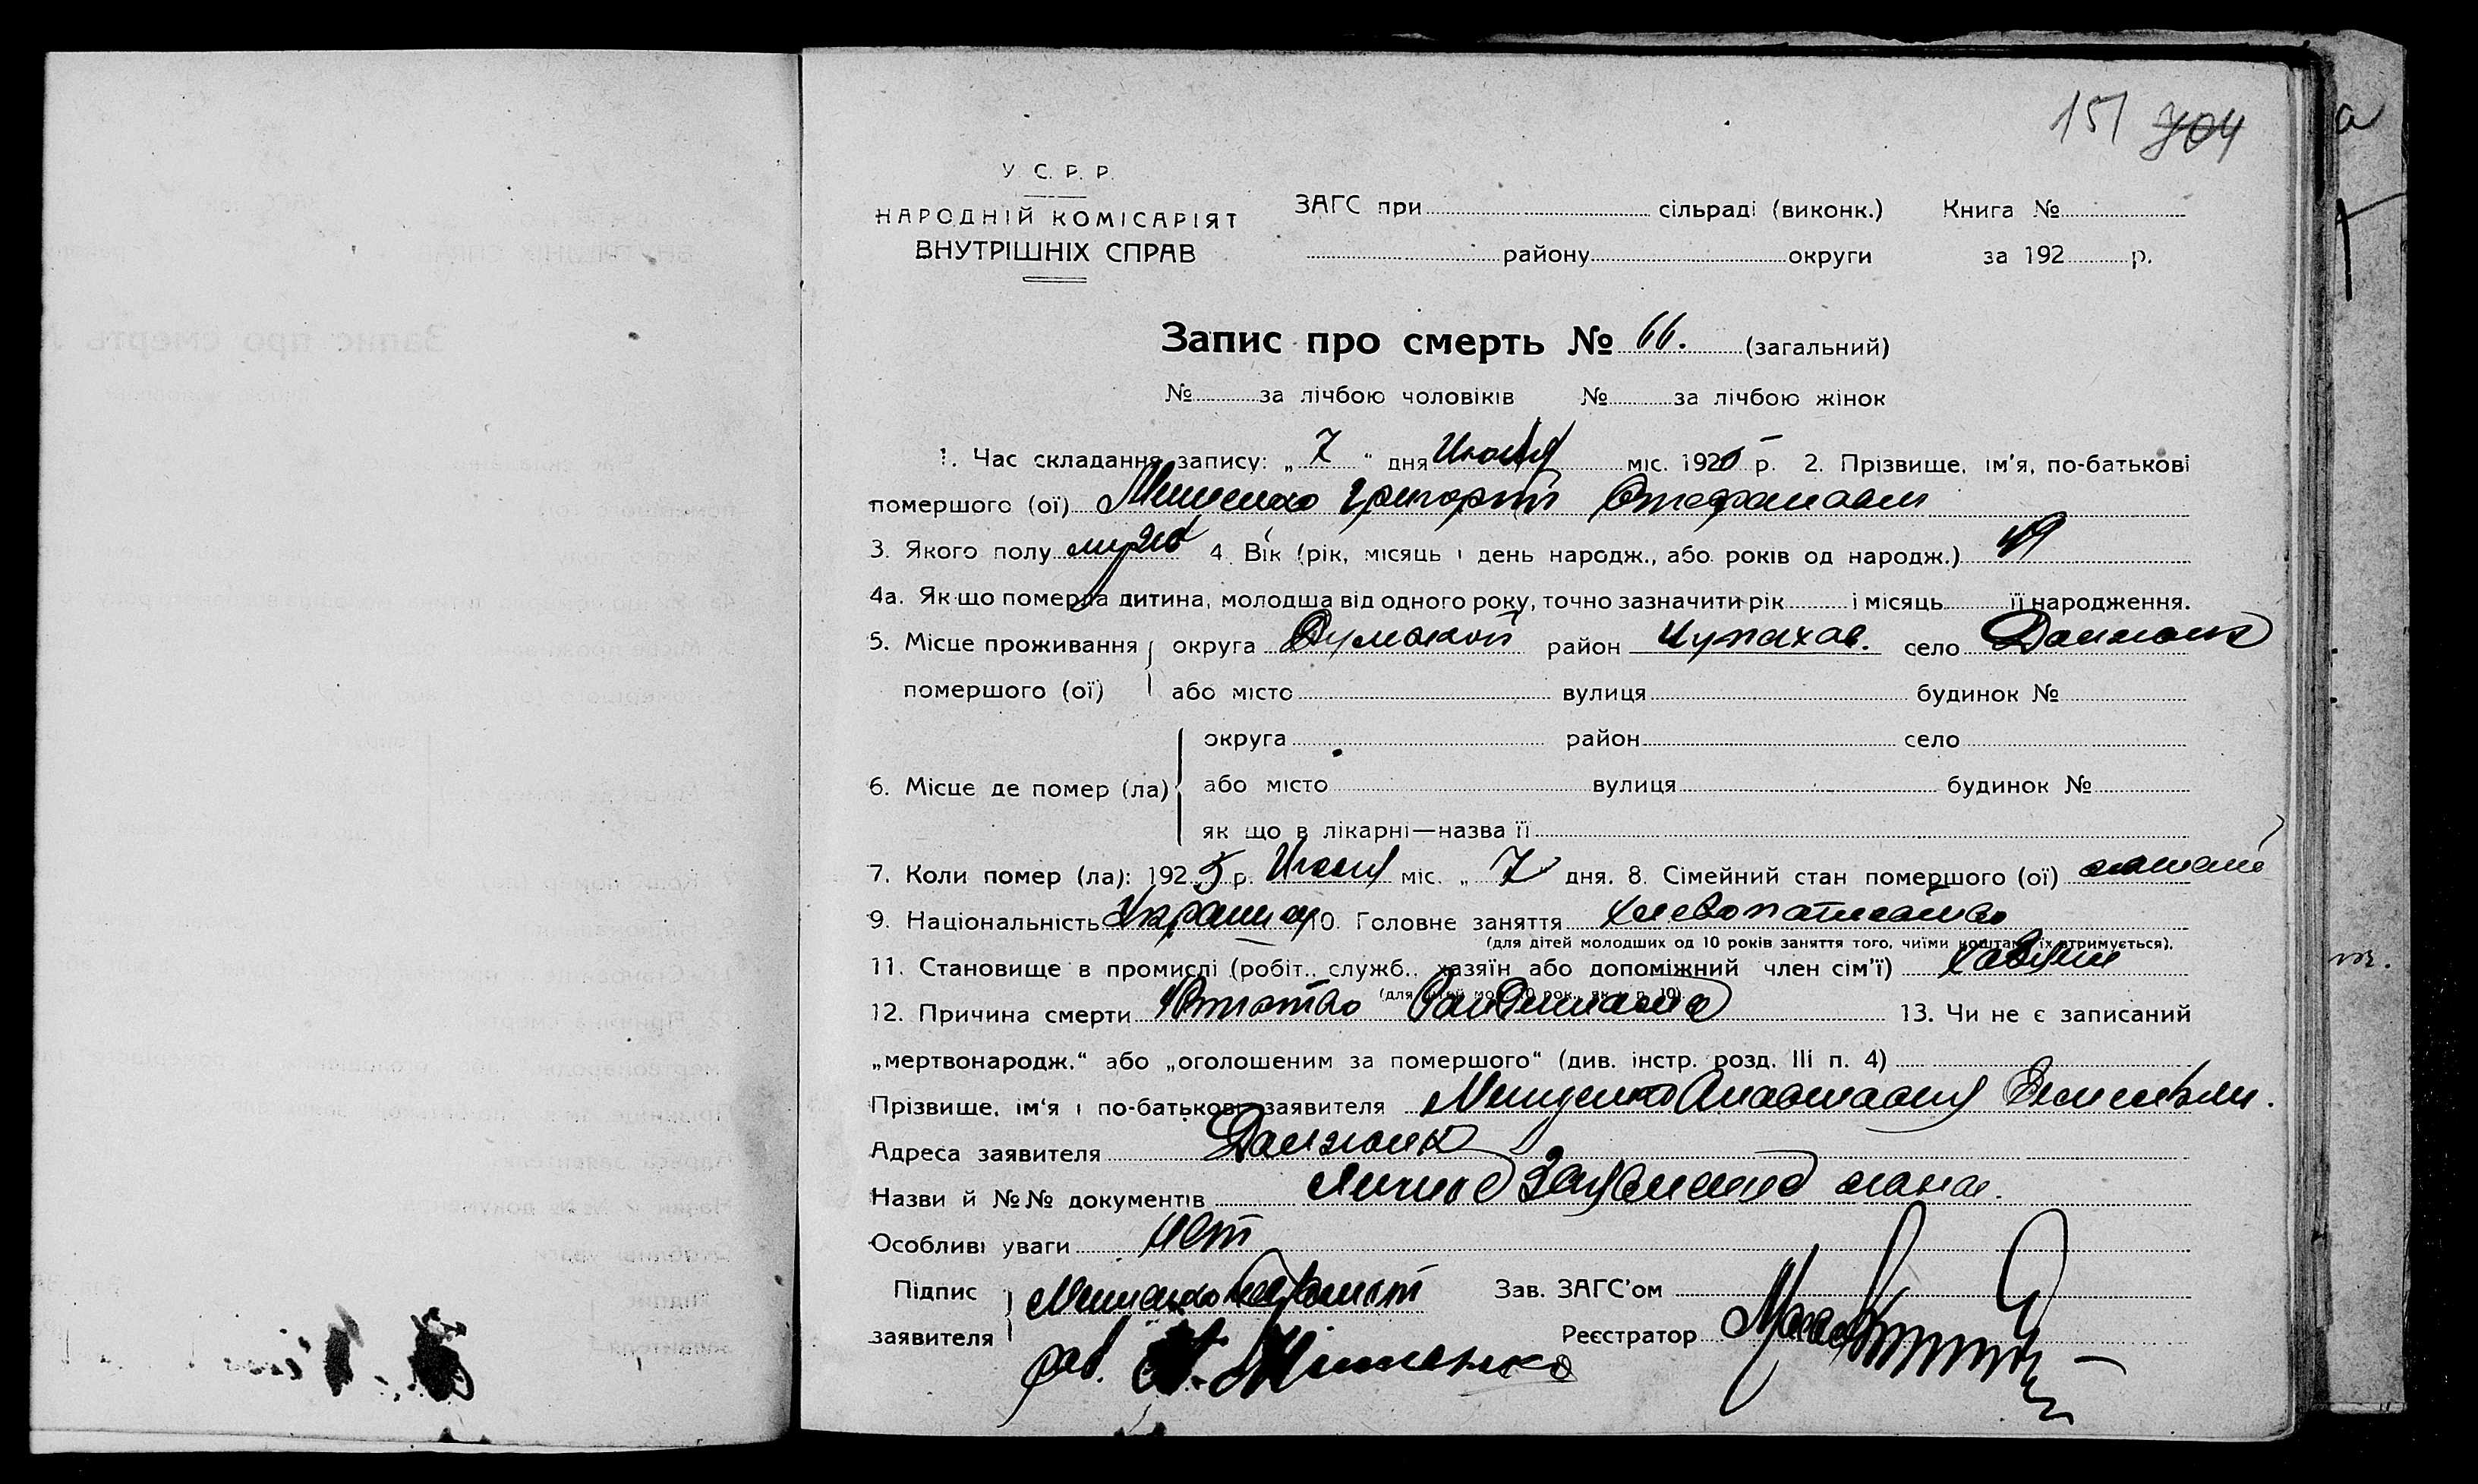 151 704
У. С. Р. Р.
НАРОДНІЙ КОМІСАРІЯТ
ВНУТРІШНІХ СПРАВ
ЗАГС при сільраді (виконк.) Книга №
району округи за 192 р.
Запис про смерть № 66. (загальний)
№ за лічбою чоловіків № за лічбою жінок
1. Час складання запису: „ 7 “ дня Июля міс. 192 р. 2. Прізвище, ім'я, по-батькові
помершого (ої) Мищенко Григорий
3. Якого полу 4. Вік (рік, місяць і день народж., або років од народж.) 49
4а. Як що померла дитина, молодша від одного року, точно зазначити рік і місяць її народження.
5. Місце проживання округа Сумской район Чупахов. село
помершого (ої) або місто вулиця будинок №
округа район село
6. Місце де помер (ла) або місто вулиця будинок №
як що в лікарні—назва її
7. Коли помер (ла): 1925 р. Июля міс. „ 7 дня. 8. Сімейний стан помершого (ої)
9. Національність 10. Головне заняття хлебопашество
(для дітей молодших од 10 років заняття того, чиїми коштами їх отримується).
11. Становище в промислі (робіт., служб., хазяїн або допоміжний член сім'ї) хазяин
(для дітей мол. 10 рок., як і п. 10)
12. Причина смерти 13. Чи не є записаний
„мертвонародж.“ або „оголошеним за помершого“ (див. інстр. розд. III п. 4)
Прізвище, ім'я і по-батькові заявителя Мищенко Анастасия
Адреса заявителя
Назви й №№ документів Личное Заявление
Особливі уваги Нет
Підпис Мищенко Зав. ЗАГС'ом
заявителя Реєстратор
Мищенко